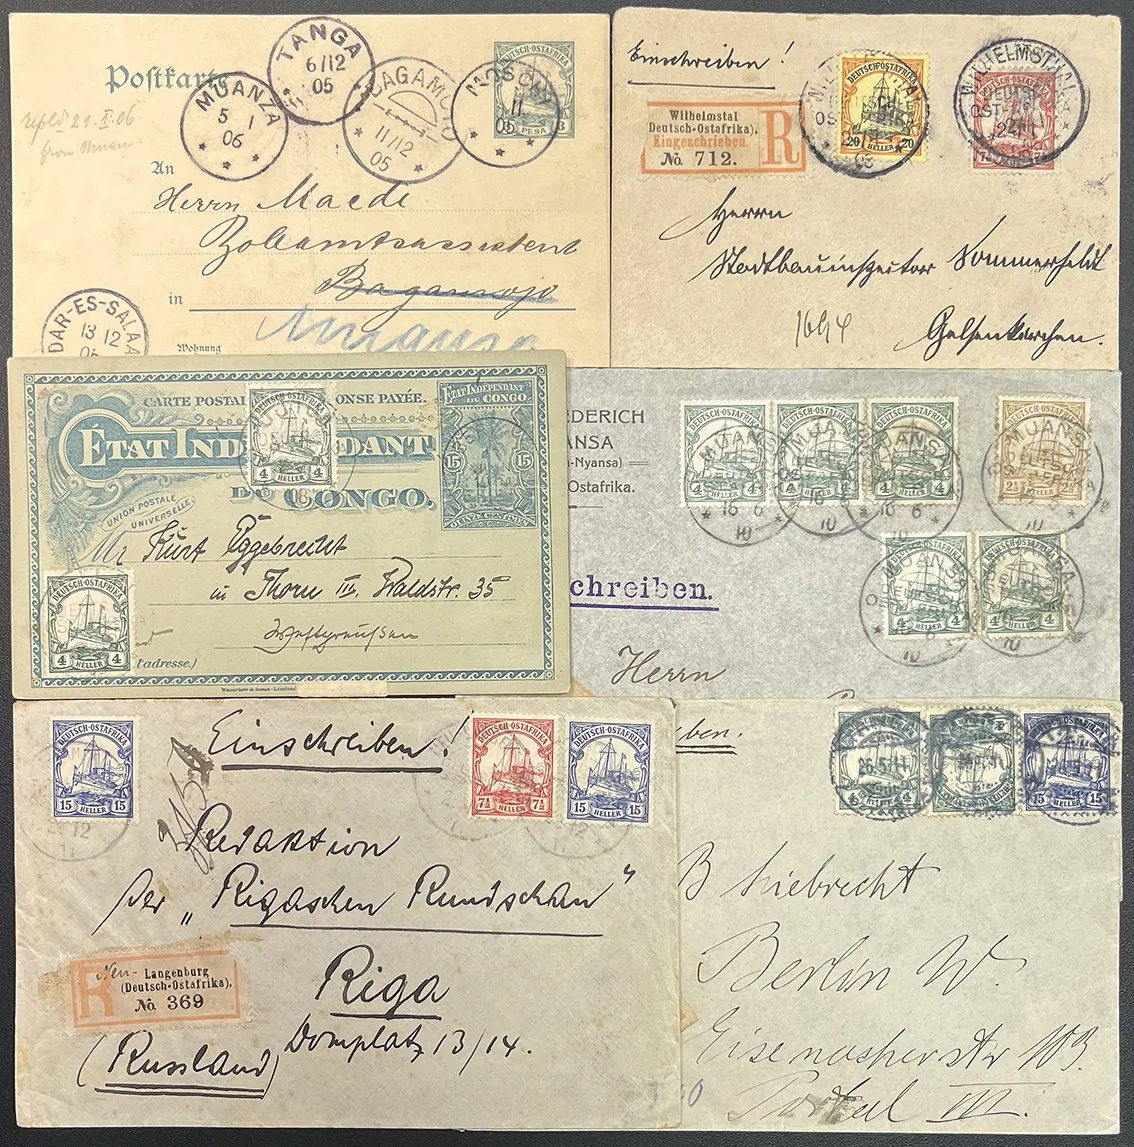 Postkarte
DEUTSCH-OSTAFRIKA
PESA
TANGA
6/12
05
MUANZA
5 1
06
BAGAMOYO
11/12
05
An
Herrn Maede
Zollamtsassistent
in Bagamojo
Muansa
Wohnung
DAR-ES-SALAA
13 12
Einschreiben!
Wilhelmstal
Deutsch-Ostafrika).
Eingeschrieben.
No. 712.
R
DEUTSCH-OSTAFRIKA
20 HELLER 20
WILHELMSTAL
Herrn
Stadtbauinspektor Sommerfeldt
1694
Gelsenkirchen.
CARTE POSTAL ONSE PAYÉE.
ÉTAT IND DANT
DU CONGO.
UNION POSTALE
UNIVERSELLE
ÉTAT INDÉPENDANT
DU CONGO.
15 15
DEUTSCH-OSTAFRIKA
4 HELLER 4
Mr Kurt Eggebrecht
in Thorn III, Waldstr. 35
Westpreußen
DEUTSCH-OSTAFRIKA
4 HELLER 4
tadresse.)
EDERICH
ANSA
-Nyansa)
Ostafrika.
DEUTSCH-OSTAFRIKA
4 HELLER 4
DEUTSCH-OSTAFRIKA
4 HELLER 4
DEUTSCH-OSTAFRIKA
4 HELLER 4
DEUTSCH-OSTAFRIKA
2½ HELLER 2½
MUANSA
16 6
10
chreiben.
DEUTSCH-OSTAFRIKA
4 HELLER 4
DEUTSCH-OSTAFRIKA
4 HELLER 4
Herrn
DEUTSCH-OSTAFRIKA
15 HELLER 15
Einschreiben!
DEUTSCH-OSTAFRIKA
7½ HELLER 7½
DEUTSCH-OSTAFRIKA
15 HELLER 15
Redaktion
der „Rigaschen Rundschau"
R
Neu-Langenburg
(Deutsch-Ostafrika).
No. 369
Riga
Domplatz 13/14.
(Russland)
eben.
4 HELLER 4
26.5.11
DEUTSCH-OSTAFRIKA
15 HELLER 15
Berlin W.
Eisenacherstr 103
Portal III.